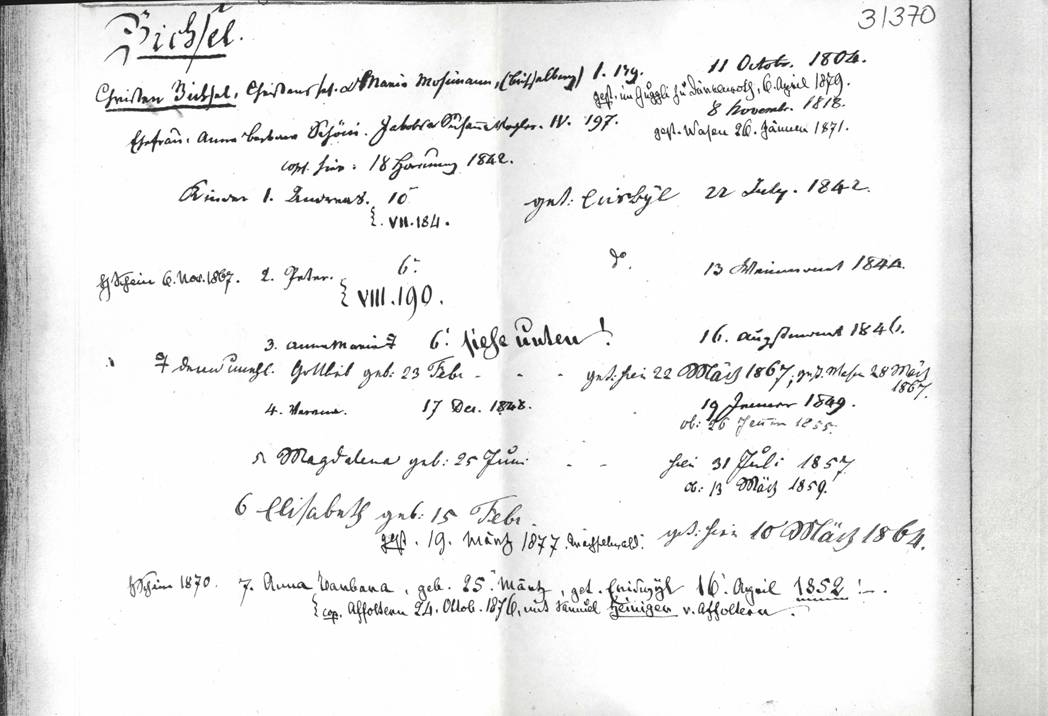 31370
Bichsel.
Christen Bichsel, Christens sel. u Maria Mosimann, I. 11 Octobr. 1804.
gest. im Guggli zu 6. April 1879.
8 Novembr. 1818.
Ehefrau: Anna Barbara Schöni. Jakobs u Susanna IV. 197. gest. Wasen 26. Jänner 1871.
cop. hier: 18 Hornung 1842.
Kinder 1. Andreas. 10 get: 22 July. 1842.
{ VII. 184.
Hschein 6. Nov. 1867. 2. Peter. 6. do. 13 Weinmonat 1844.
{ VIII. 190.
3. Anna Maria 7 6. siehe unten! 16. Augstmonat 1846.
7 deren unehl. Gottlieb geb: 23 Febr - - - get: hier 22 März 1867; gest. Wasen 28 März
1867.
4. Verena. 17 Dec. 1848. 19 Jenner 1849.
ob: 26 Jenner 1855.
5 Magdalena geb: 25 Juni - - hier 31 Juli 1857
ob: 13 März 1859.
6 Elisabeth geb: 15 Febr. get: hier 10 März 1864.
gest. 19. März 1877.
Hschein 1870. 7. Anna Barbara, geb. 25. März, get. 16. April 1852!-.
{ cop. Affoltern 24. Octob. 1876, mit Samuel Heiniger v. Affoltern.